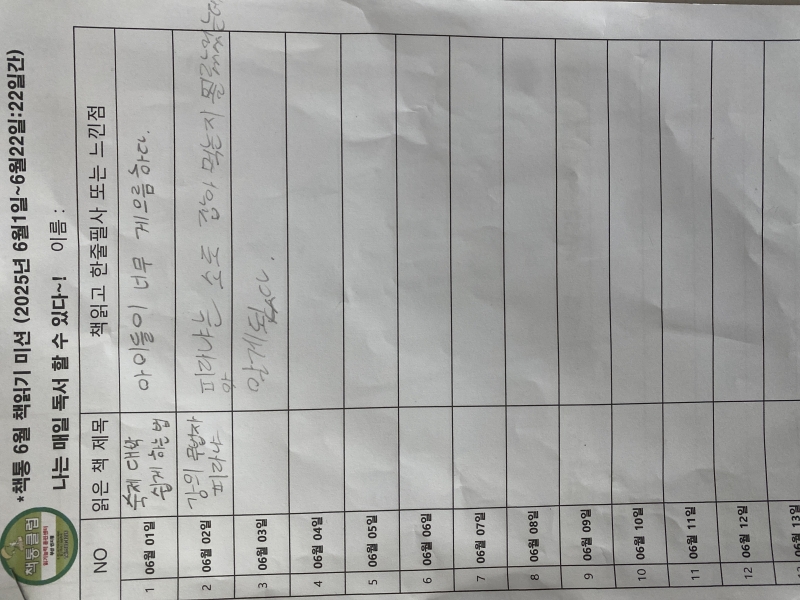 책통클럽
*책통 6월 책읽기 미션 (2025년 6월1일~6월22일:22일간)
나는 매일 독서 할 수 있다~! 이름 :
NO 읽은 책 제목 책읽고 한줄필사 또는 느낀점
1 06월 01일 숙제 대박 쉽게 하는 법 아이들이 너무 게으름하다.
2 06월 02일 강의 무법자 피라냐 피라냐는 소도 잡아 먹는지 몰랐는데
알게됬다.
3 06월 03일
4 06월 04일
5 06월 05일
6 06월 06일
7 06월 07일
8 06월 08일
9 06월 09일
10 06월 10일
11 06월 11일
12 06월 12일
13 06월 13일